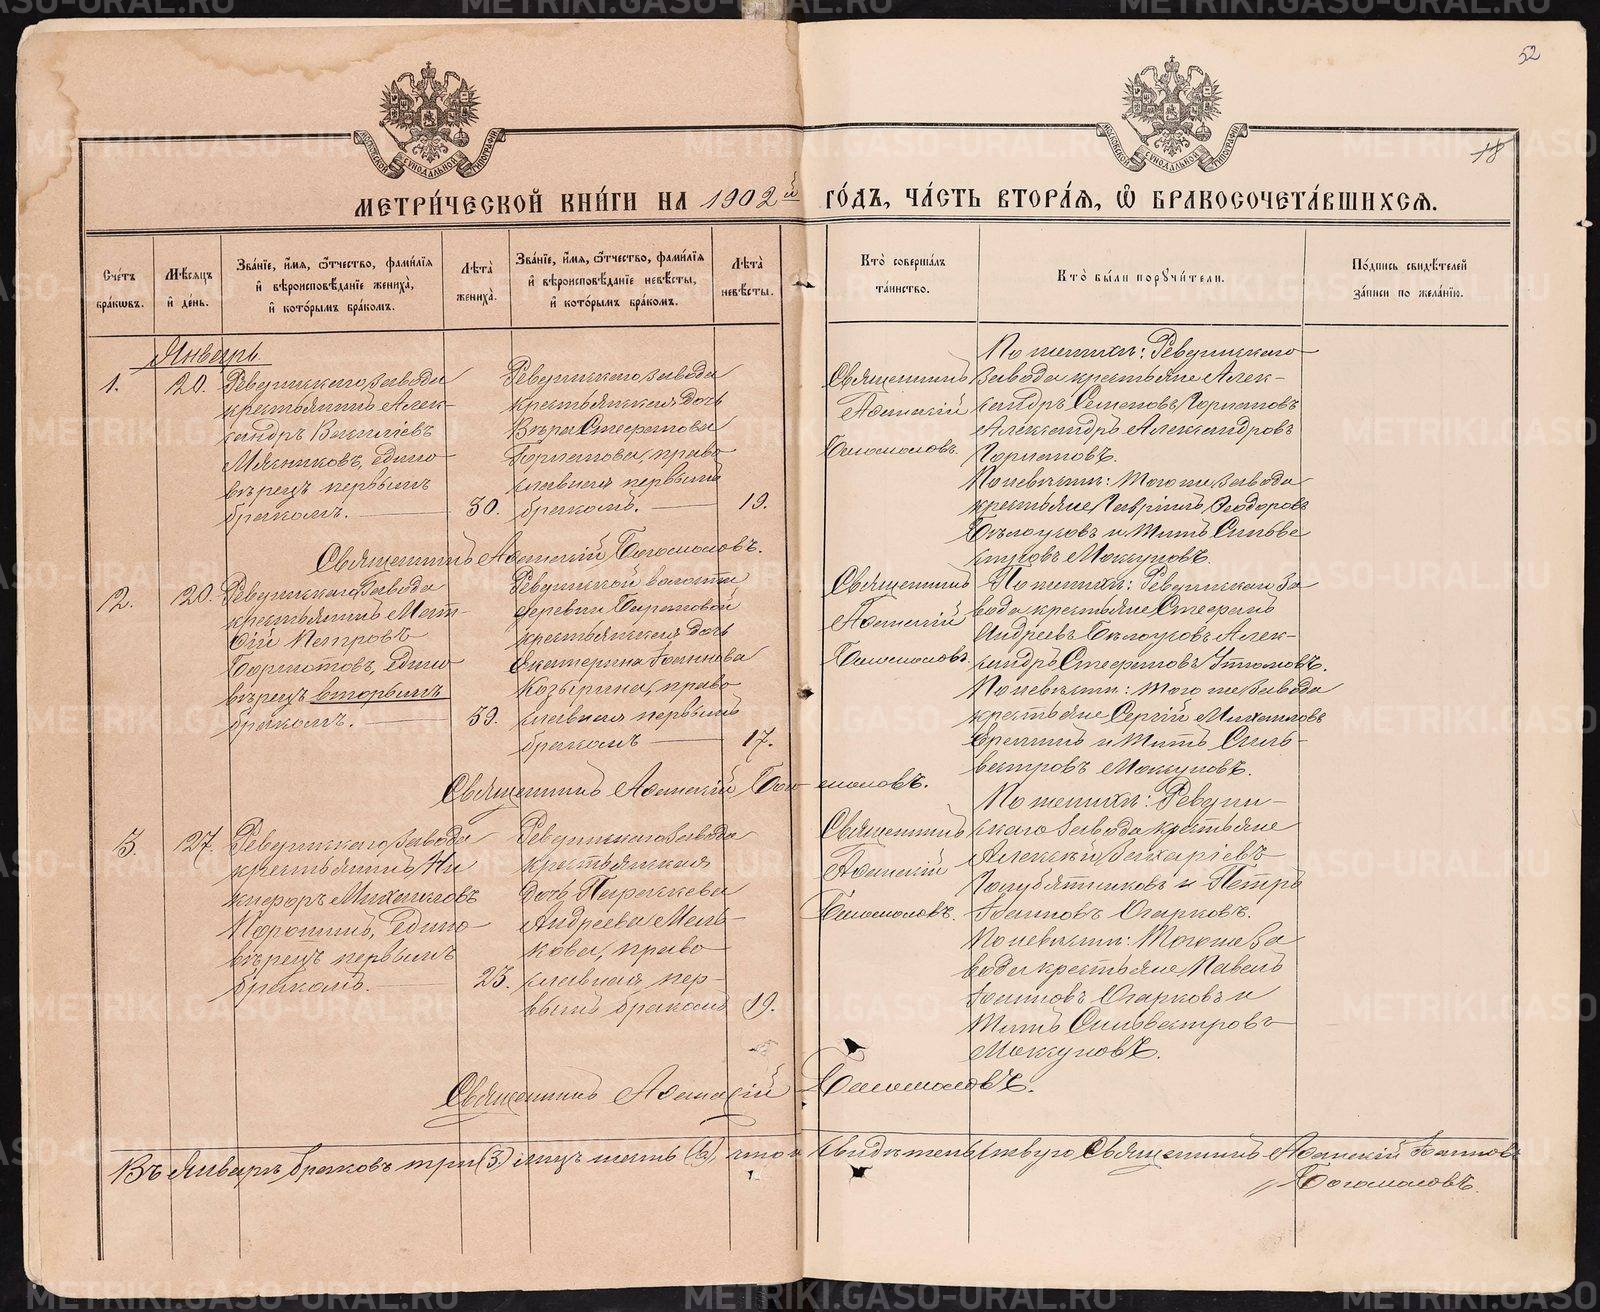 52
18
МОСКОВСКОЙ СѴНОДАЛЬНОЙ ТИПОГРАФІИ
МОСКОВСКОЙ СѴНОДАЛЬНОЙ ТИПОГРАФІИ
МЕТРИ́ЧЕСКОЙ КНИ́ГИ НА 1902й ГО́ДЪ, ЧА́СТЬ ВТОРА́Я, Ѡ БРАКОСОЧЕТА́ВШИХСЯ.
Сче́тъ бра́кѡвъ.
Мѣ́сяцъ и́ де́нь.
Зва́нїе, и́мя, ѻ́тчество, фами́лїя и́ вѣроисповѣ́данїе жениха̀, и́ кото́рымъ бра́комъ.
Лѣта̀ жениха̀.
Зва́нїе, и́мя, ѻ́тчество, фами́лїя и́ вѣроисповѣ́данїе невѣ́сты, и́ кото́рымъ бра́комъ.
Лѣта̀ невѣ́сты.
Кто̀ соверша́лъ та́инство.
Кто̀ бы́ли порꙋчи́тели.
По́дпись свидѣ́телей за́писи по жела́нїю.
Январь
1.
20.
Ревдинскаго завода
крестьянинъ Алек-
сандръ Василіевъ
Мясниковъ, едино
вѣрецъ первымъ
бракомъ.
30.
Ревдинскаго завода
крестьянская дочь
Вѣра Стефанова
Горланова, право
славная первымъ
бракомъ.
19.
Священникъ
Афанасій
Богомоловъ.
По женихѣ: Ревдинскаго
завода крестьяне Алек-
сандръ Семеновъ Горлановъ
Александръ Александровъ
Горлановъ.
По невѣстѣ: Того же завода
крестьяне Гавріилъ Ѳеодоровъ
Бѣлоусовъ и Титъ Сильве
стровъ Моксуновъ.
Священникъ Афанасій Богомоловъ.
2.
20.
Ревдинскаго завода
крестьянинъ Мат-
ѳій Петровъ
едино
вѣрецъ вторымъ
бракомъ.
39.
Ревдинской волости
деревни Барановой
крестьянская дочь
Екатерина Іоаннова
Козырина, право
славная первымъ
бракомъ
17.
Священникъ
Афанасій
Богомоловъ.
По женихѣ: Ревдинскаго за
вода крестьяне Стефанъ
Андреевъ Бѣлоусовъ Алек-
сандръ Стефановъ
По невѣстѣ: того же завода
крестьяне Сергій Михаиловъ
и Титъ Силь-
вестровъ Моксуновъ.
Священникъ Афанасій Богомоловъ.
3.
27.
Ревдинскаго завода
крестьянинъ Ни
кифоръ Михаиловъ
едино
вѣрецъ первымъ
бракомъ.
23.
Ревдинскаго завода
крестьянская
дочь Параскева
Андреева Мель-
кова, право
славная пер-
вымъ бракомъ
19.
Священникъ
Афанасій
Богомоловъ.
По женихѣ: Ревдин-
скаго завода крестьяне
Алексѣй Захаріевъ
Голубятниковъ и Петръ
Іоанновъ Огарковъ.
По невѣстѣ: Того же за
вода крестьяне Павелъ
Іоанновъ Огарковъ и
Титъ Сильвестровъ
Моксуновъ.
Священникъ Афанасій Богомоловъ.
Въ Январѣ браковъ три (3) лицъ шесть (6), что и свидѣтельствую Священникъ Афанасій Іоанновъ
Богомоловъ.